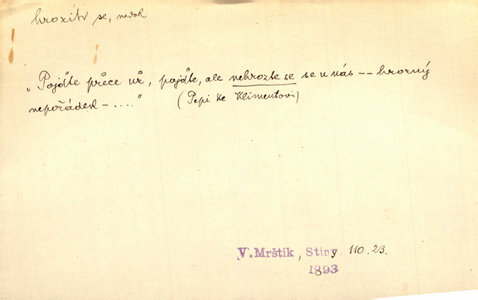 hrozit se, nedok
„Pojďte přece už, pojďte, ale nehrozte se se u nás -- hrozný
nepořádek - ...." (Pepi ke Klimentovi)
V. Mrštík, Stíny 110.23.
1893